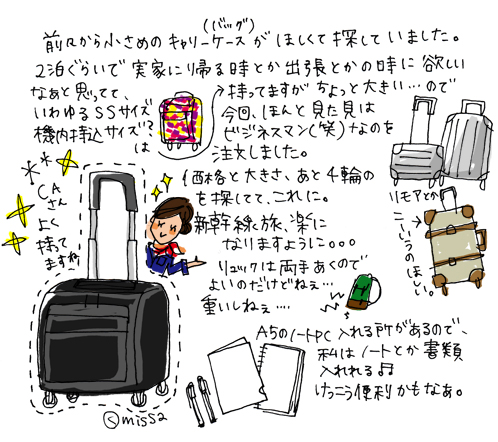 (バッグ)
前々から小さめのキャリーケースがほしくて探していました。
2泊ぐらいで実家に帰る時とか出張とかの時に欲しい
なぁと思ってて、
いわゆるSSサイズ
機内持込サイズ?
は
→持ってますがちょっと大きい…ので
今回、ほんと見た見は
ビジネスマン(笑)なのを
注文しました。
価格と大きさ、あと4輪の
を探してて、これに。
新幹線旅、楽に
なりますように。。。
CA
さん
よく
持って
ますね
リモアとか
こーいうのほしい。
リュックは両手あくので
よいのだけどねぇ…
重いしねぇ…
A5のノートPC入れる所があるので、
私はノートとか書類
入れれる♫
けっこう便利かもなぁ。
©miss2